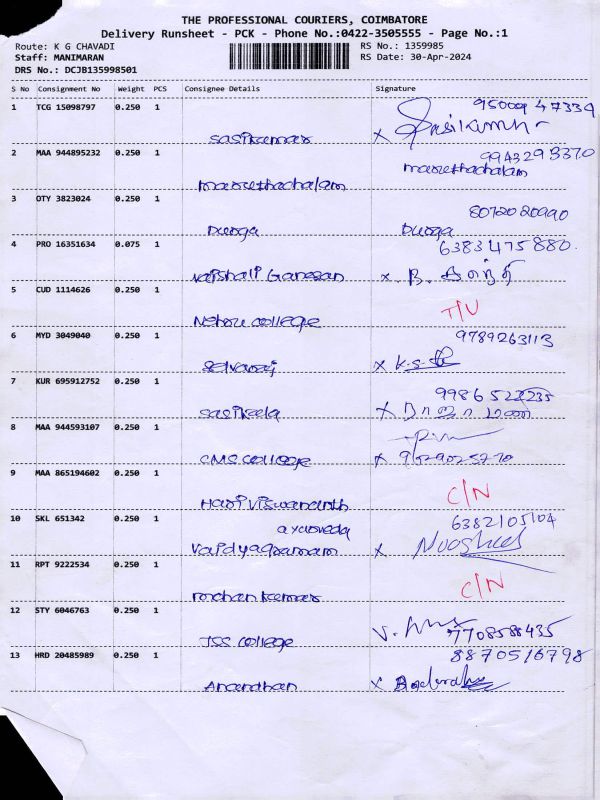 THE PROFESSIONAL COURIERS, COIMBATORE
Delivery Runsheet - PCK - Phone No.:0422-3505555 - Page No.:1
Route: K G CHAVADI
RS No.: 1359985
Staff: MANIMARAN
RS Date: 30-Apr-2024
DRS No.: DCJB135998501
S No Consignment No Weight PCS Consignee Details Signature
95009 47339
1 TCG 15098797 0.250 1
sasikumar x Sasikumar
9943293370
2 MAA 944895232 0.250 1
marudhachalam
3 OTY 3823024 0.250 1
8072020990
Durga Durga
4 PRO 16351634 0.075 1 6383475880.
Vaishali Ganesan x B.
5 CUD 1114626 0.250 1
T/U
Nehru college
6 MYD 3049040 0.250 1 9789263113
Selvaraj x K.S
7 KUR 695912752 0.250 1
sasikala x
8 MAA 944593107 0.250 1
CMS COLLEGE x
9 MAA 865194602 0.250 1
C/N
Hari Viswananth
10 SKL 651342 0.250 1 6382105104
ayurveda
Vaidyagramam x
11 RPT 9222534 0.250 1
C/N
mohan kumar
12 STY 6046763 0.250 1
JSS college V. 7708588435
13 HRD 20485989 0.250 1 8870516798
Anandhan x